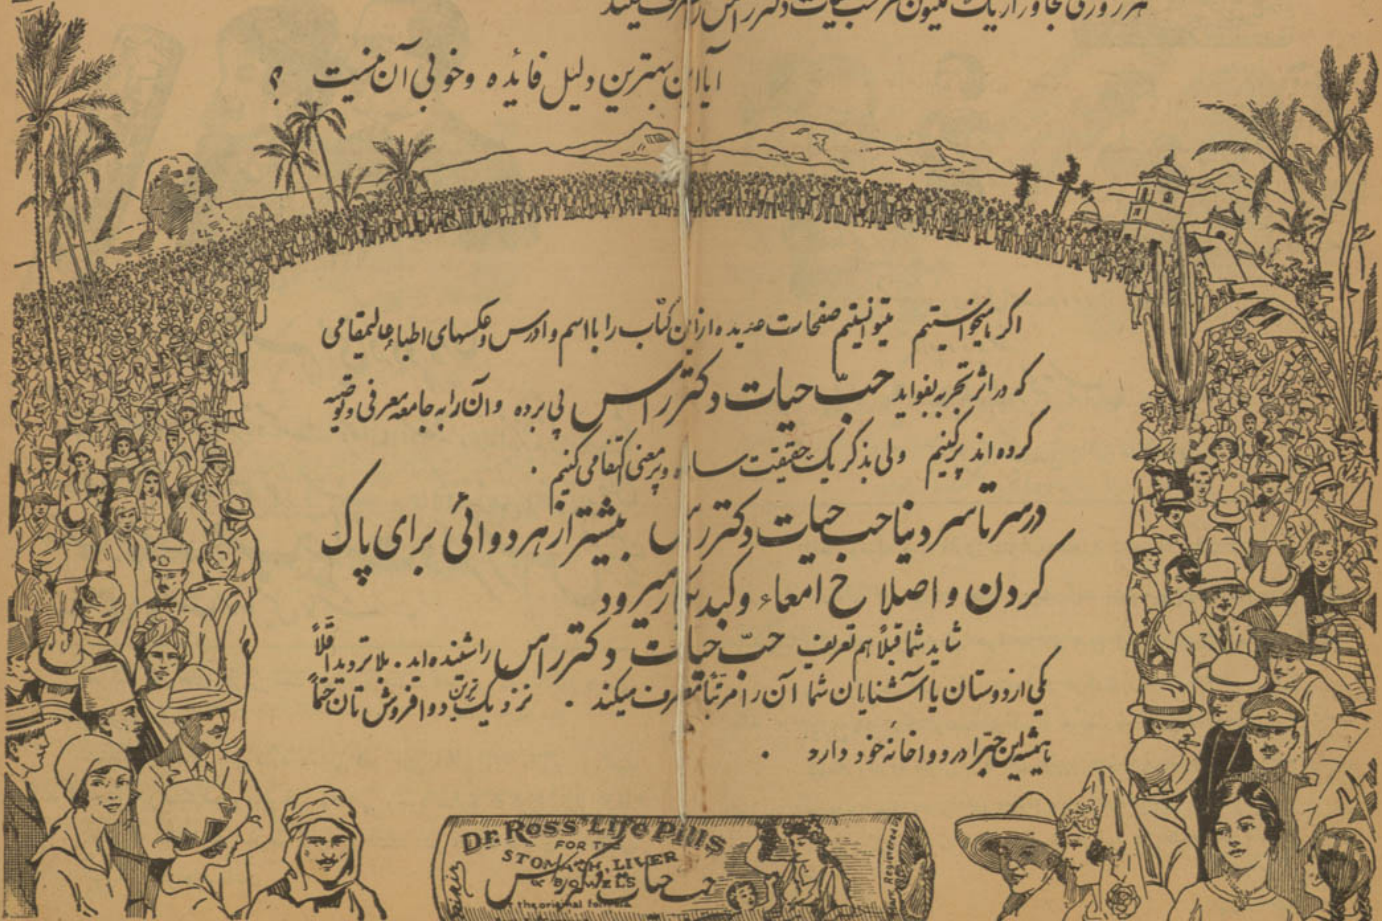 هر روزی تجاوز از یک ملیون نفر حب حیات دکتر راس را مصرف میکنند
آیا این بهترین دلیل فائده و خوبی آن نیست ؟
اگر میخواستیم میتوانستیم صفحات عدیده از این کتاب را با اسم و ادرس و عکسهای اطباء عالیمقامی
که در اثر تجربه بفواید حبّ حیات دکتر راس پی برده و آن را به جامعه معرفی و توصیه
کرده اند پر کنیم ولی بذکر یک حقیقت ساده و پر معنی اکتفا می کنیم .
در سر تا سر دنیا حب حیات دکتر راس بیشتر از هر دوائی برای پاک
کردن و اصلاح امعاء و کبد بکار میرود
شاید شما قبلاً هم تعریف حبّ حیات دکتر راس را شنیده اید . بلا تردید اقلّاً
یکی از دوستان یا آشنایان شما آن را مرتباً مصرف میکند . نزدیک ترین دوا فروش تان حتماً
همیشه این حب را در دواخانه خود دارد .
Dr. Ross' Life Pills
FOR THE
STOMACH, LIVER
& BOWELS
حب حیات دکتر راس
the original formula